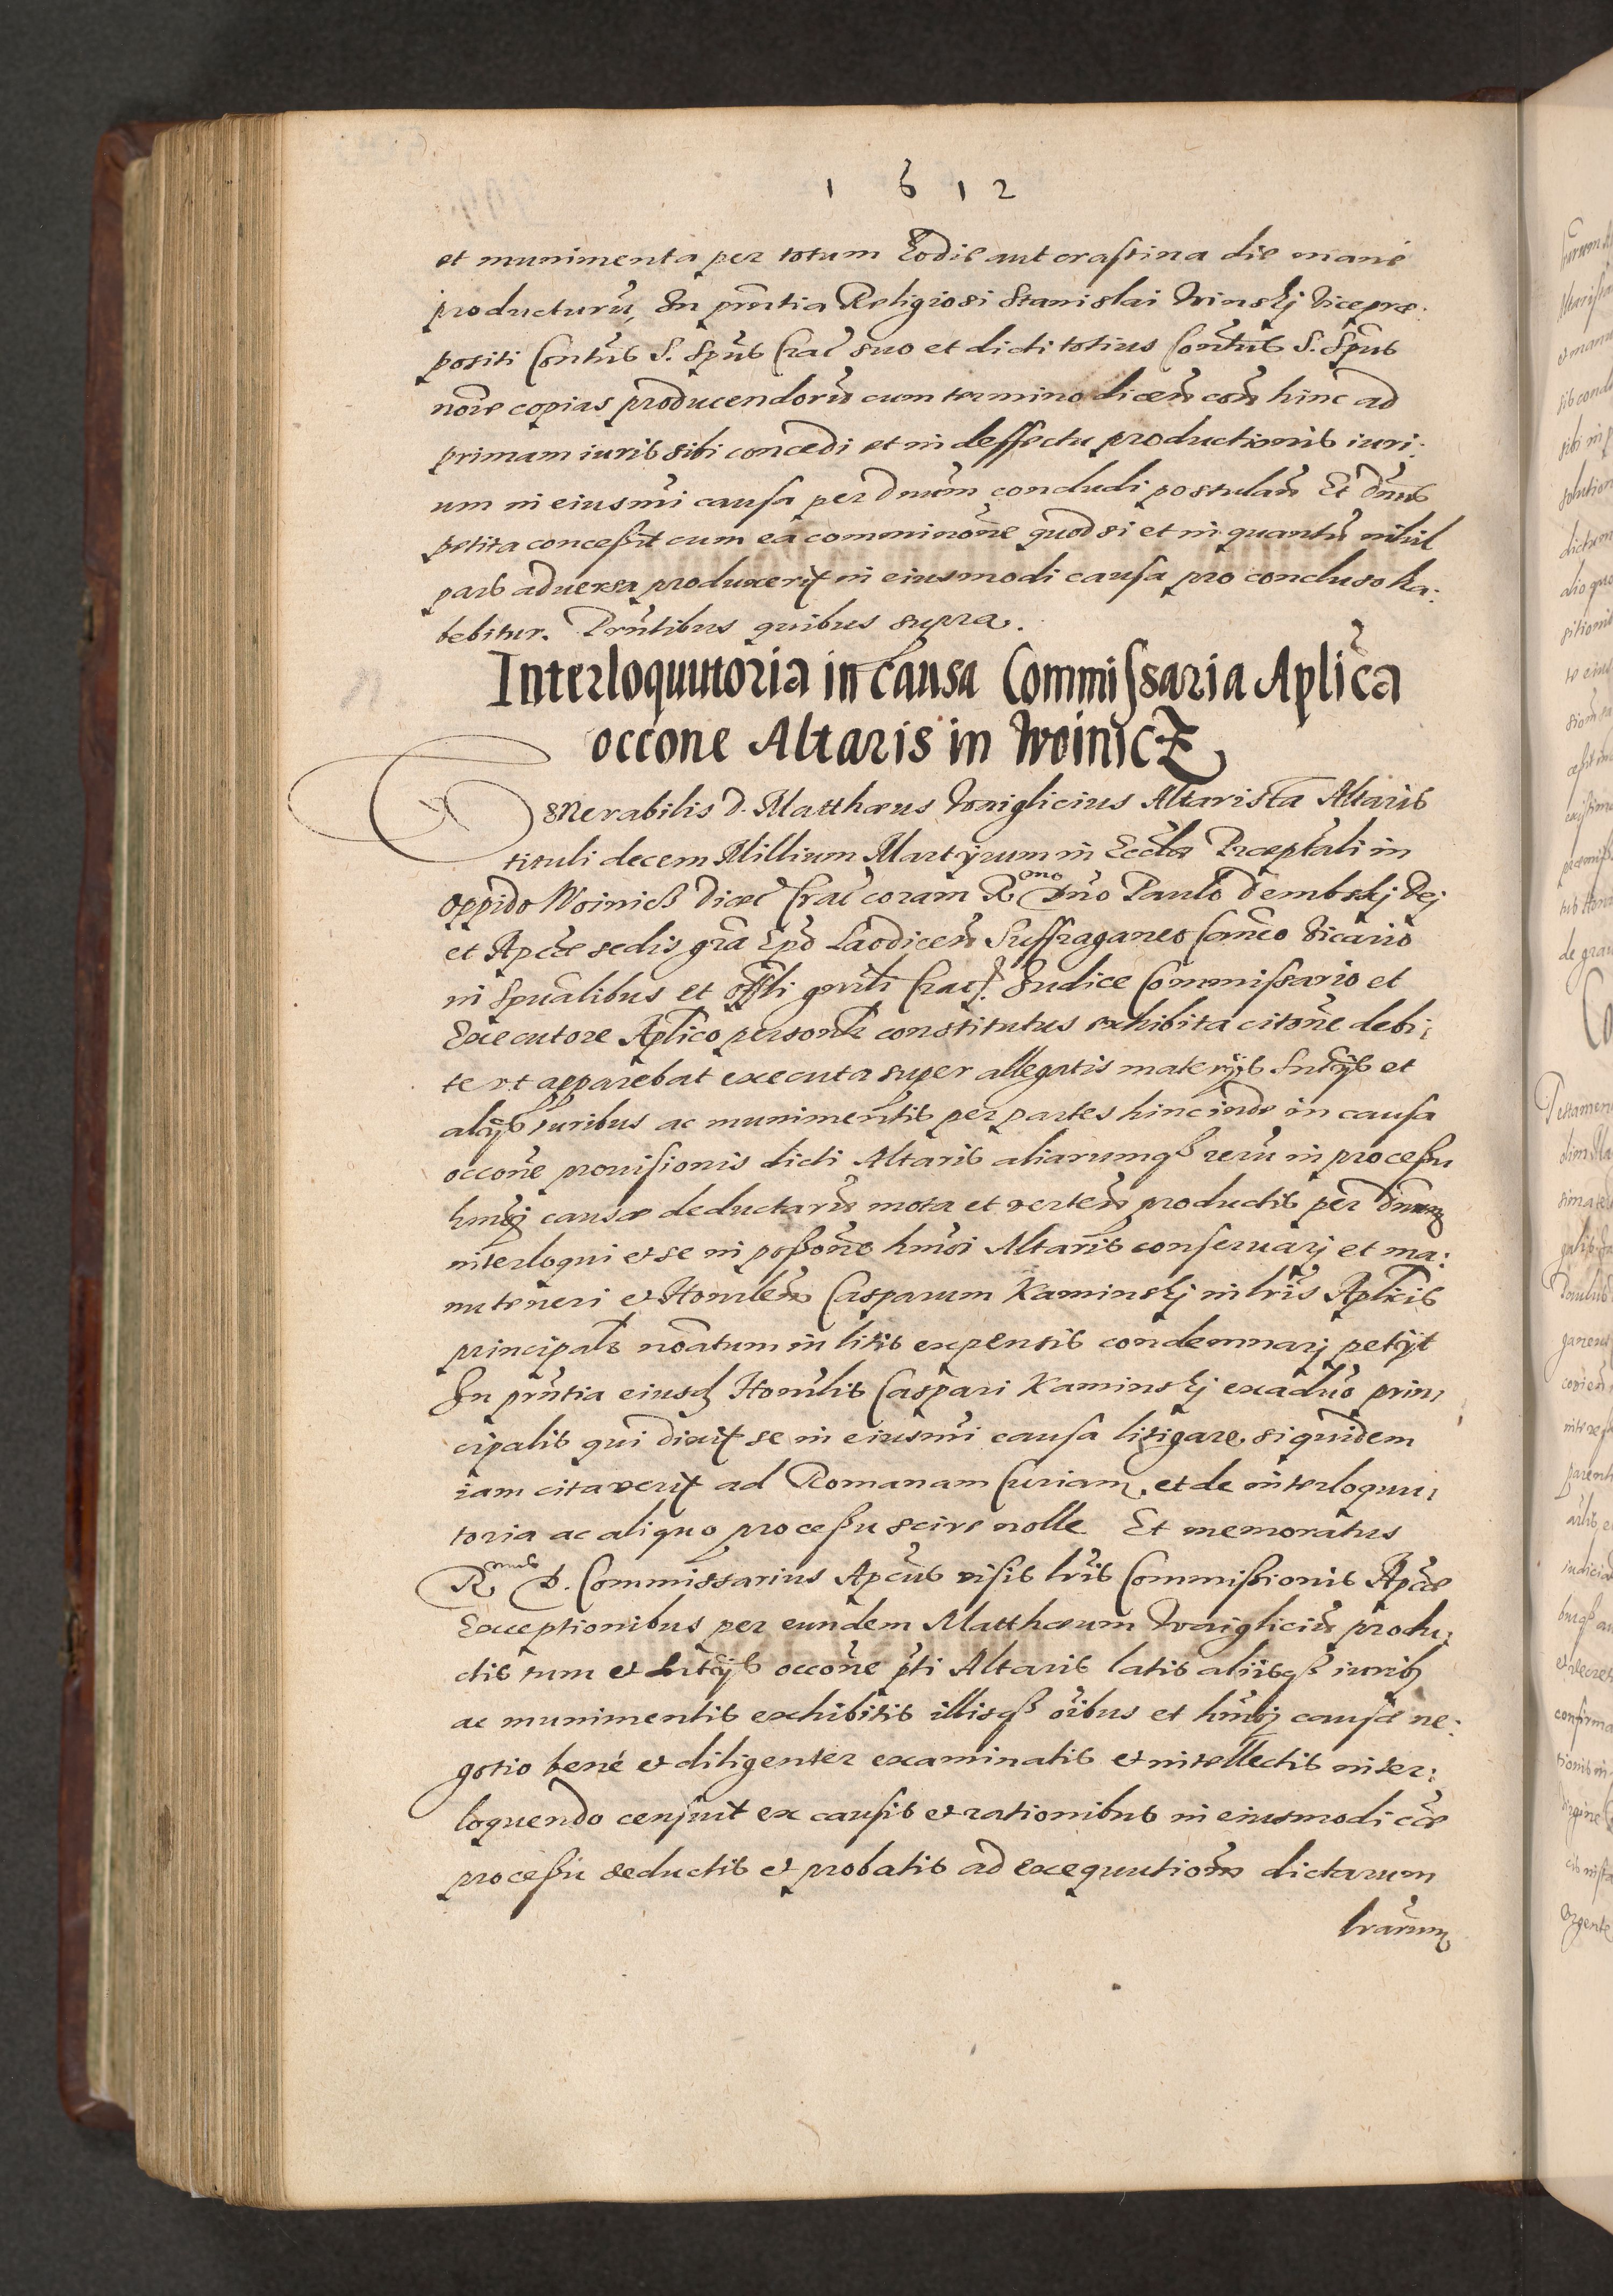 1 6 1 2
et munimenta per totum hodie aut crastina die mane
producturū, In prn̄tia Religiosi Stanislai Winskj Viceprae:
positi Conūtus S. Spūs Crac̄ suo et dicti totius Conūtus S. Spūs
noīe copias producendorū cum termino dicen̄ con̄ hinc ad
primam iuris sibi concedi et in deffectu productionis iuri:
um in eiusmōi causa per Dnūm concludi postulan̄ Et Dnūs
petita concessit cum ea comminōne quod si et in quantū nihil
pars adversa produxerit in eiusmodi causa pro concluso ha:
bebitur. Prn̄tibus quibus supra.
Interloquutoria in causa Commissaria Aplīca
occōne Altaris in Woinicz
Venerabilis D. Matthaeus Waiglicius Altarista Altaris
tituli decem Millium Martyrum in Eccla Praeptali in
oppido Woinicz Diaec̄ Crac̄ coram R^mo Dnō Paulo Dembskj Dej
et Aplcae sedis grā Epō Laodicen̄ Suffraganeo Canco Vicario
in Spūalibus et offli gnrāli Crac̄. Judice Commissario et
Executore Aplīco personlr constitutus exhibita citōne debi:
te vt apparebat executa super allegatis materijs Sntijs et
alijs Iuribus ac munimentis per partes hinc inde in causa
occōne provisionis dicti Altaris aliarumqз rerū in processu
hmōi causae deductarū mota et verten̄ productis per Dnum
interloqui et se in possōne hmōi Altaris conservarj et ma:
nuteneri et Honrlem Casparum Kaminskj in lrīs Aplīcis
principalr noātum in litis expensis condemnarj petijt
In prn̄tia eiusd Honrlis Caspari Kaminskj ex aduo prin:
cipalis qui dixit se in eiusmōi causa litigare, siquidem
iam citaverit ad Romanam Curiam, et de interloquu:
toria ac aliquo processu scire nolle Et memoratus
R^mus D. Commissarius Aplcus visis lrīs Commissionis Aplcae
Exceptionibus per eundem Matthaeum Waigliciū produ:
ctis tum et Sntijs occōne pti Altaris latis aliisqз iuribз
ac munimentis exhibitis illisqз oībus et hmōi causae ne:
gotio bené et diligenter examinatis et intellectis inter:
loquendo censuit ex causis et rationibus in eiusmodi cāe
processu deductis et probatis ad exequutionem dictarum
lrarum